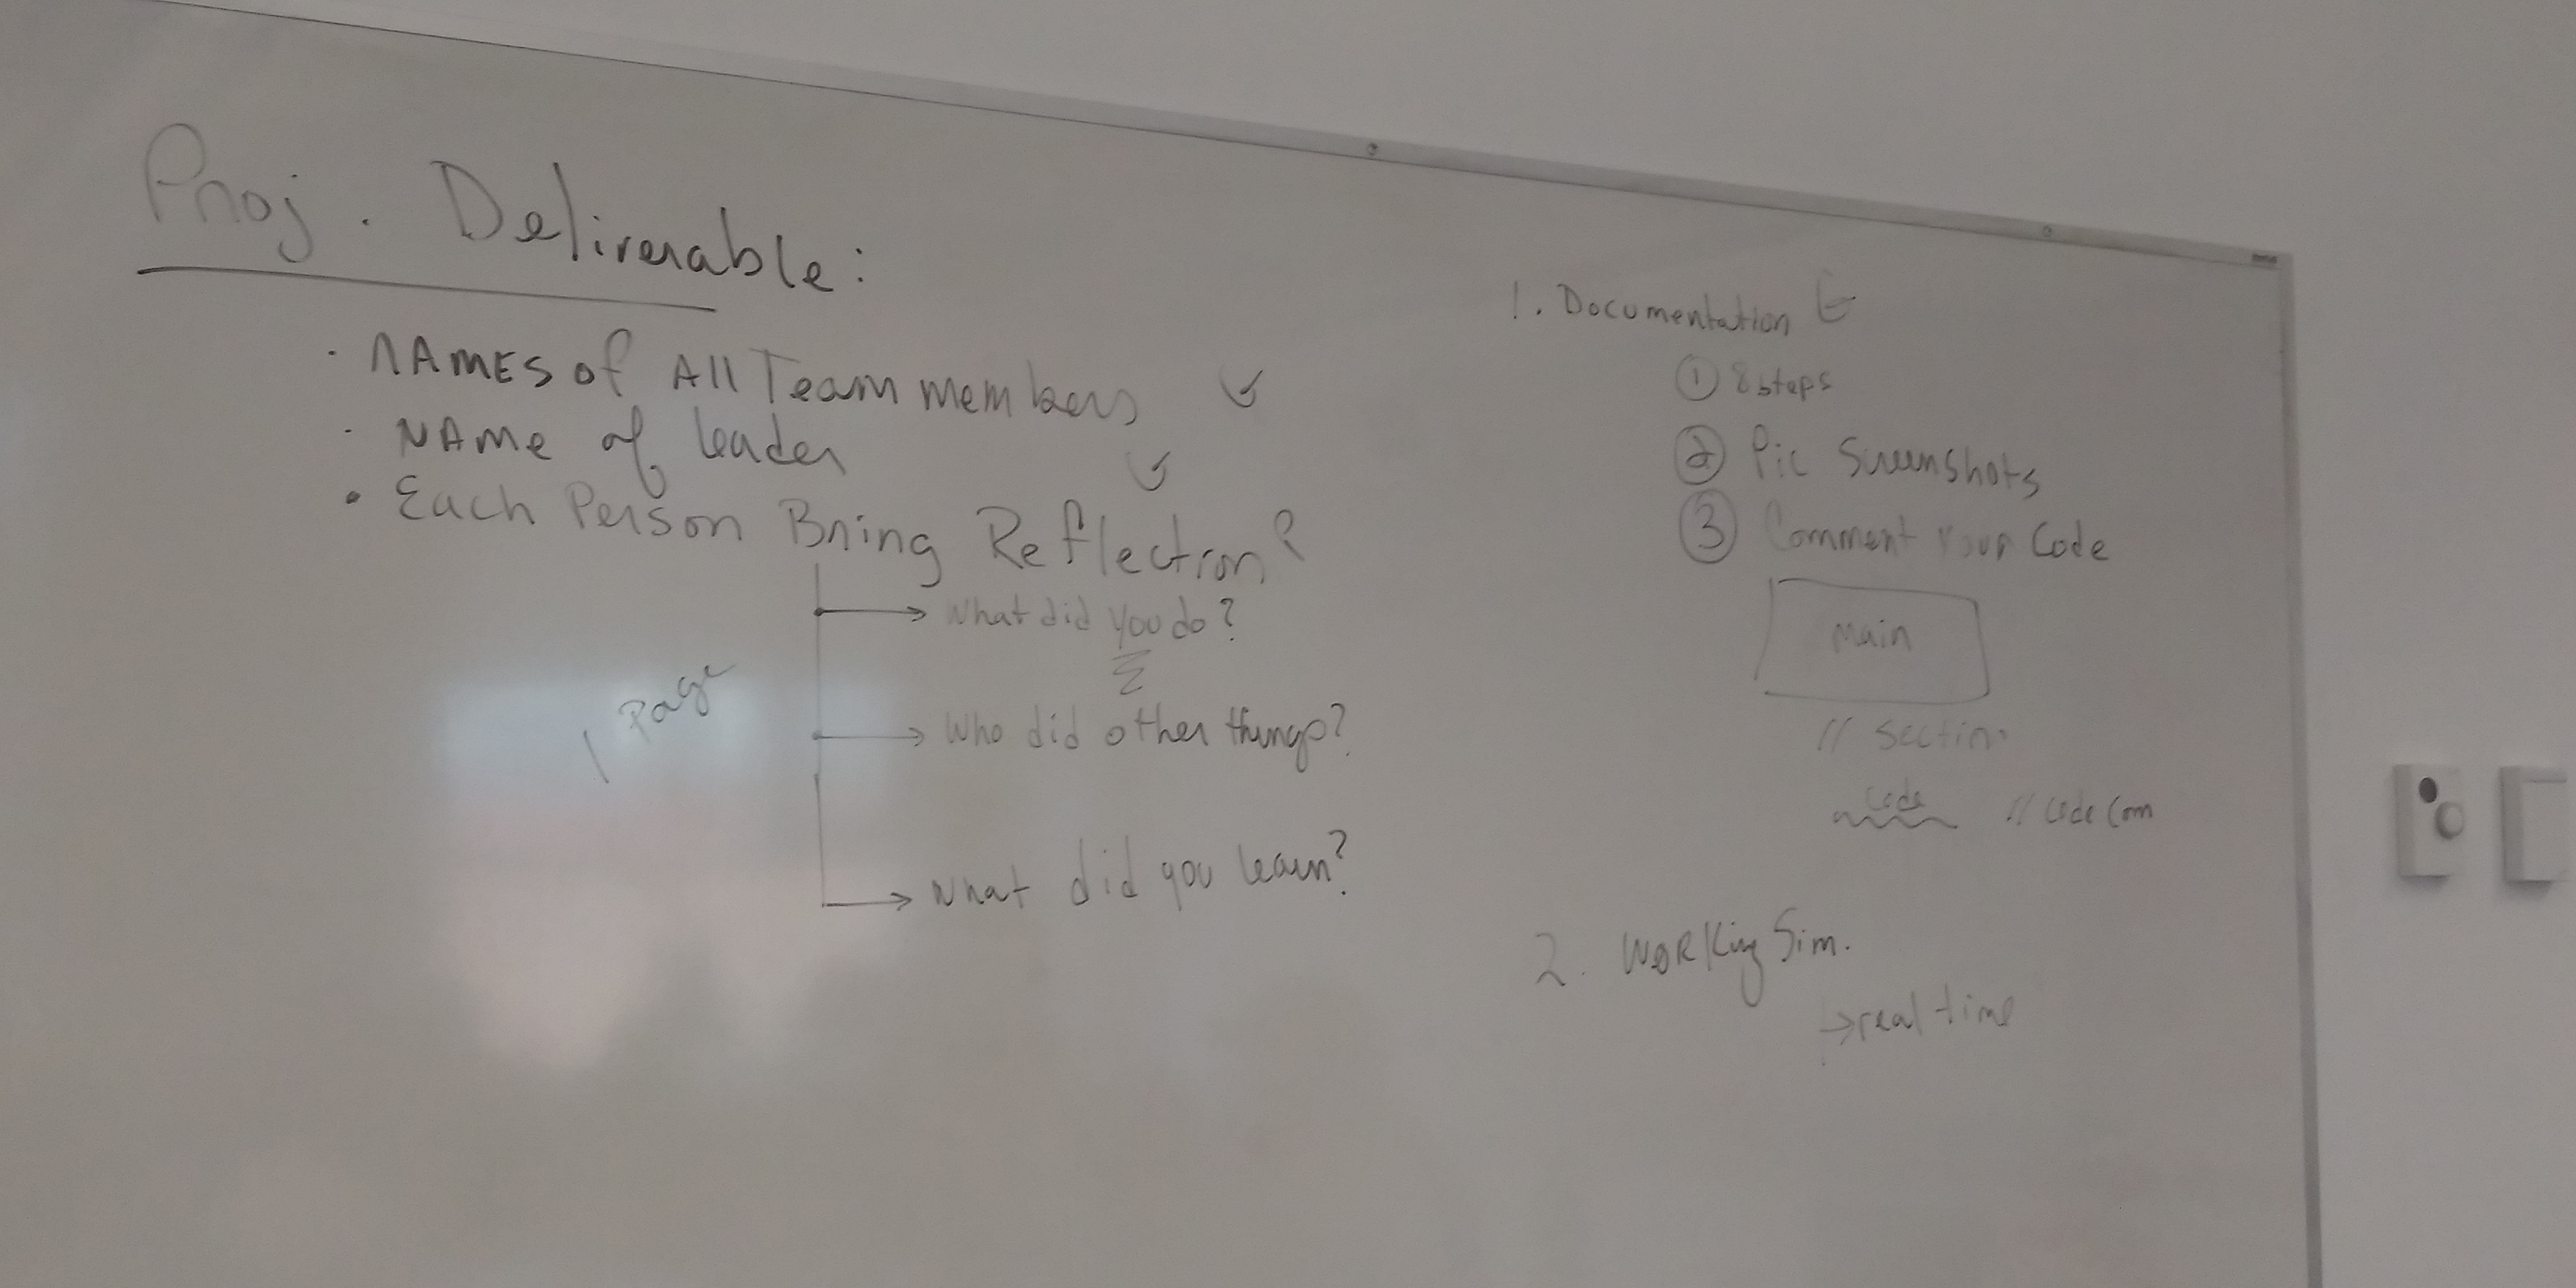 Proj. Deliverable:
· NAMES of All Team members
· NAme of leader
· Each Person Bring Reflection?
What did you do?
1 Page
Who did other things?
What did you learn?
1. Documentation
① 8 steps
② Pic Screenshots
③ Comment Your Code
Main
// Section
Code // Code Com
2. Working Sim.
→ real time